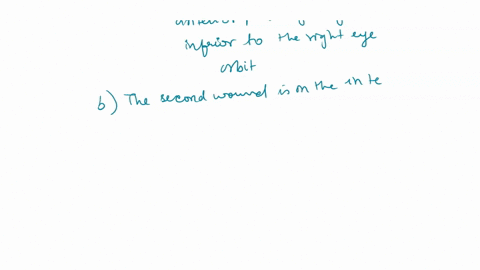 inferior to the right eye
orbit
b) The second wound is on the inte